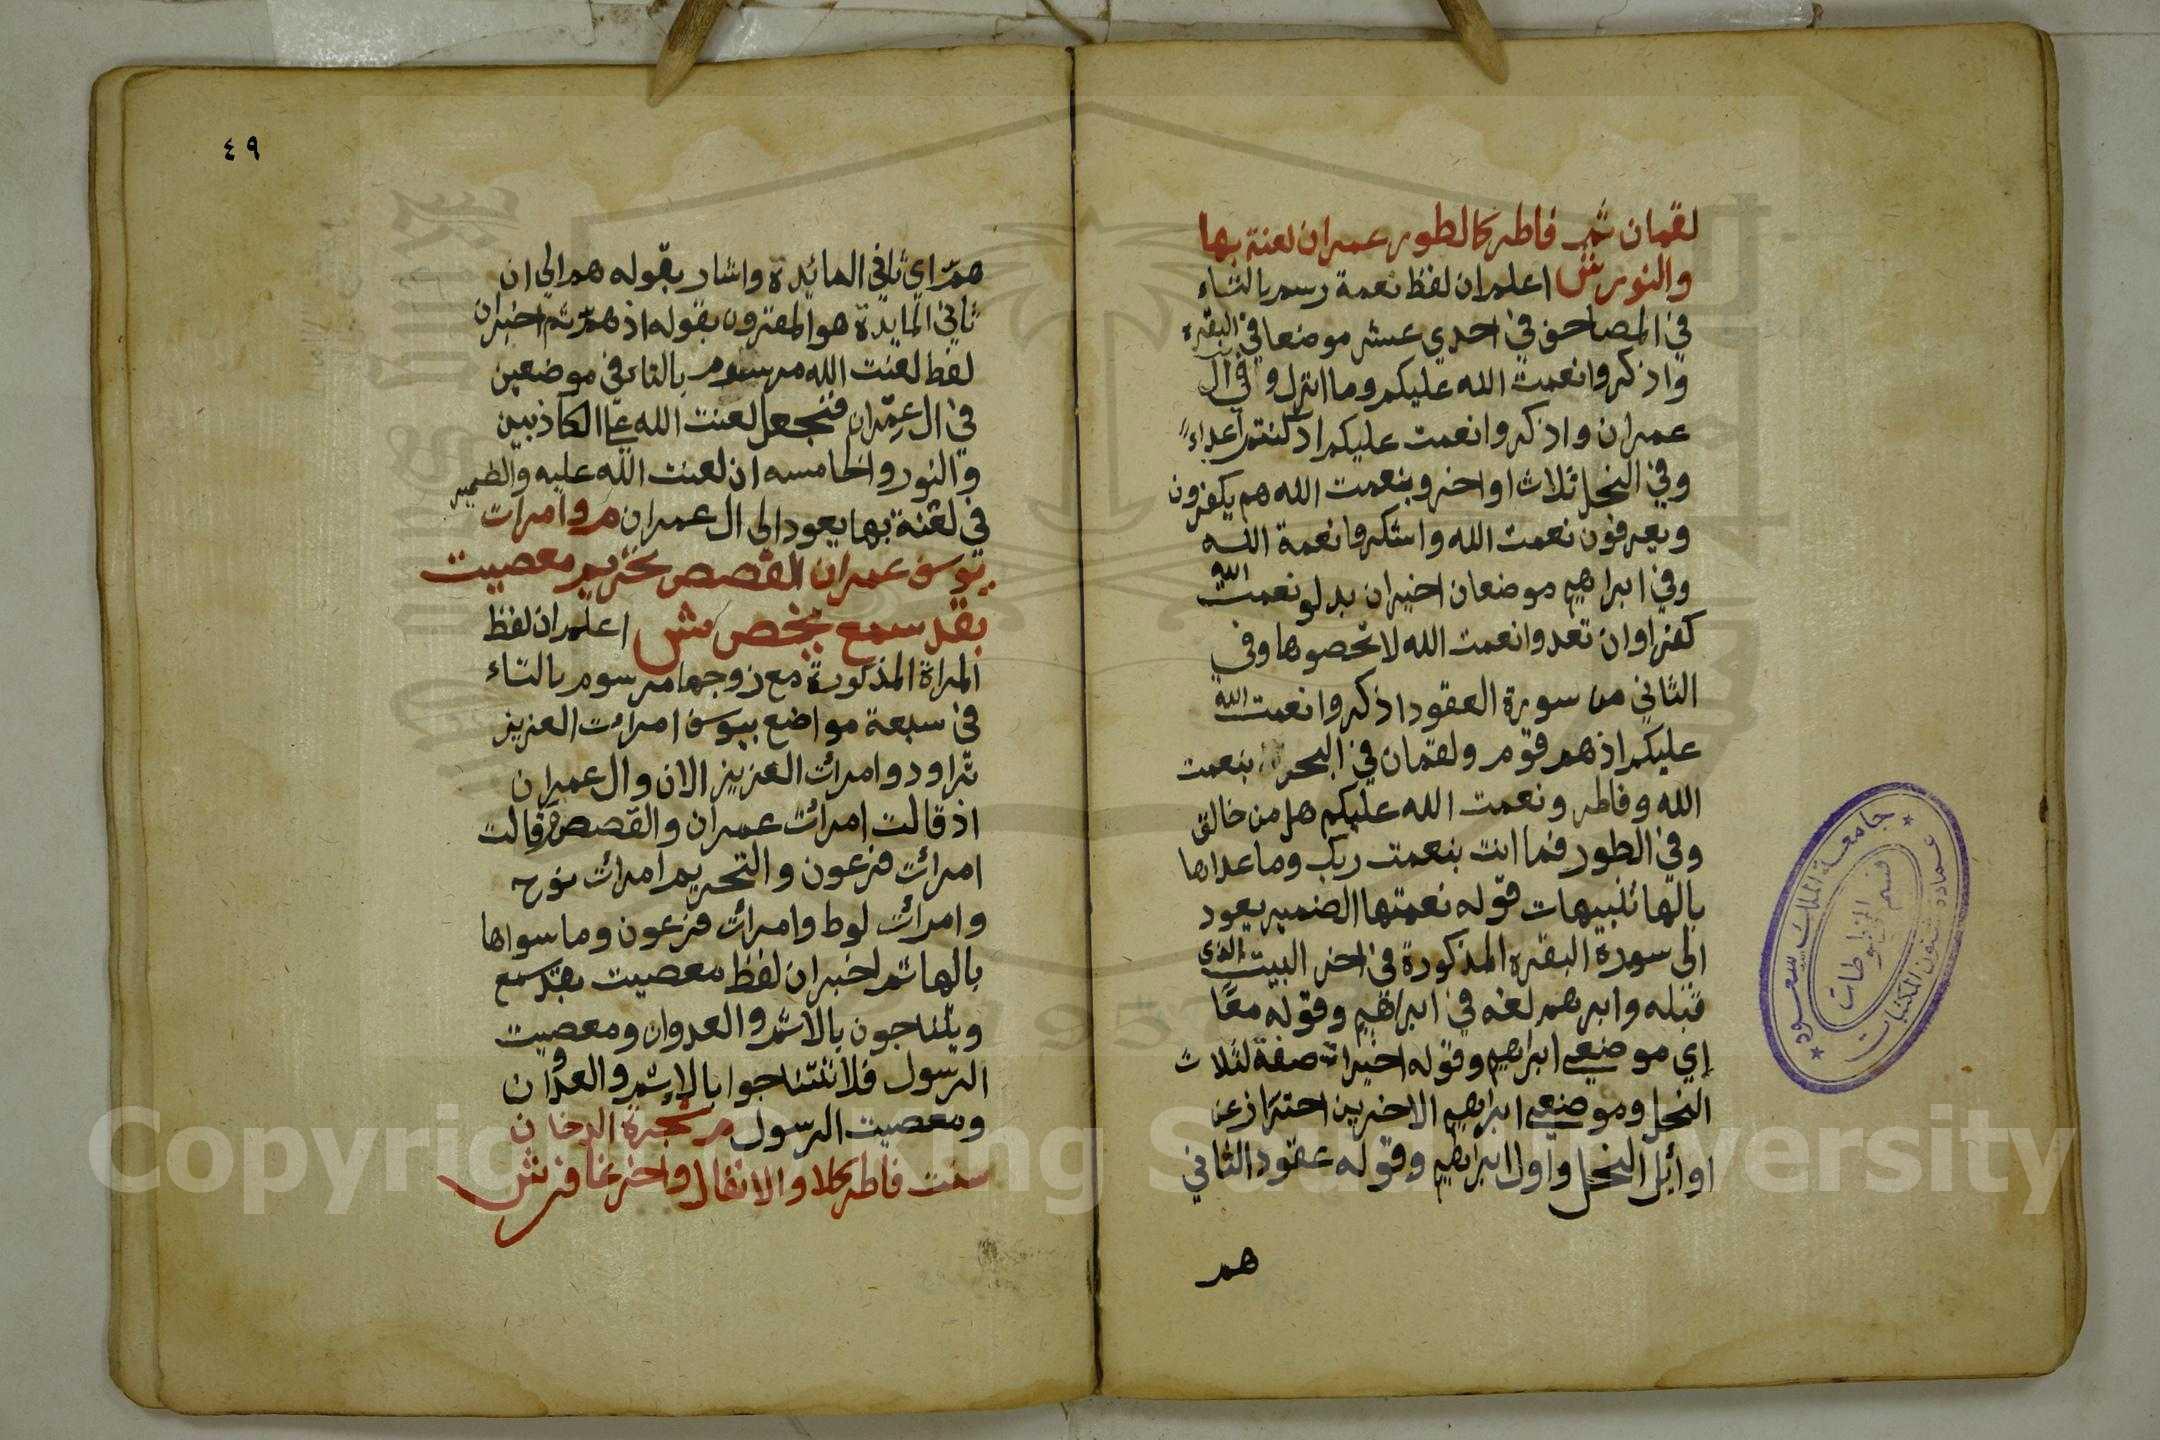 لقمان ثم فاطر كالطور عمران لعنة بها
والنور ش اعلم ان لفظ نعمة رسم بالتاء
في المصاحف في احدي عشر موضعا في البقرة
واذكروا نعمت الله عليكم وما انزل وفي آل
عمران واذكروا نعمت عليكم اذ كنتم اعداء
وفي النحل ثلاث اواخر وبنعمت الله هم يكفرون
ويعرفون نعمت الله واشكروا نعمة الله
وفي ابراهيم موضعان اخيران بدلو نعمت الله
كفرا وان تعدوا نعمت الله لا تحصوها وفي
الثاني من سورة العقود اذكروا نعمت الله
عليكم اذ هم قوم ولقمان في البحر بنعمت
الله وفاطر ونعمت الله عليكم هل من خالق
وفي الطور فما انت بنعمت ربك وما عداها
بالها تنبيهات قوله نعمتها الضمير يعود
الى سورة البقرة المذكورة في اخر البيت الذي
قبله وابرهم لغه في ابراهيم وقوله معًا
اي موضعي ابراهيم وقوله اخيرات صفة لثلاث
النحل وموضعي ابراهيم الاخرين احتراز عن
اوائل النحل واول ابراهيم وقوله عقود الثاني
هم
٤٩
هم اي ثاني المائدة واشار بقوله هم الي ان
ثاني المايدة هو المقترون بقوله اذ هم ثم اخبر ان
لفظ لعنت الله مرسوم بالتاء في موضعين
في ال عمران فنجعل لعنت الله على الكاذبين
والنور والخامسه ان لعنت الله عليه والضمير
في لعنة بها يعود الى ال عمران م وامرات
يوسف عمران القصص تحريم معصيت
بقد سمع يخص ش اعلم ان لفظ
المراة المذكورة مع زوجها مرسوم بالتاء
في سبعة مواضع بيوسف امرات العزيز
تراود وامرات العزيز الان وال عمران
اذ قالت امرات عمران والقصص وقالت
امرات فرعون والتحريم امرات نوح
وامرات لوط وامرات فرعون وما سواها
بالها ثم اخبر ان لفظ معصيت بقد سمع
ويتناجون بالاثم والعدوان ومعصيت
الرسول فلا تتناجوا بالاثم والعدوان
ومعصيت الرسول م شجرة الدخان
سنت فاطر كلا والانفال واخر غافر ش
جامعة الملك سعود
عمادة شئون المكتبات
قسم المخطوطات
Copyright © King Saud University
1957